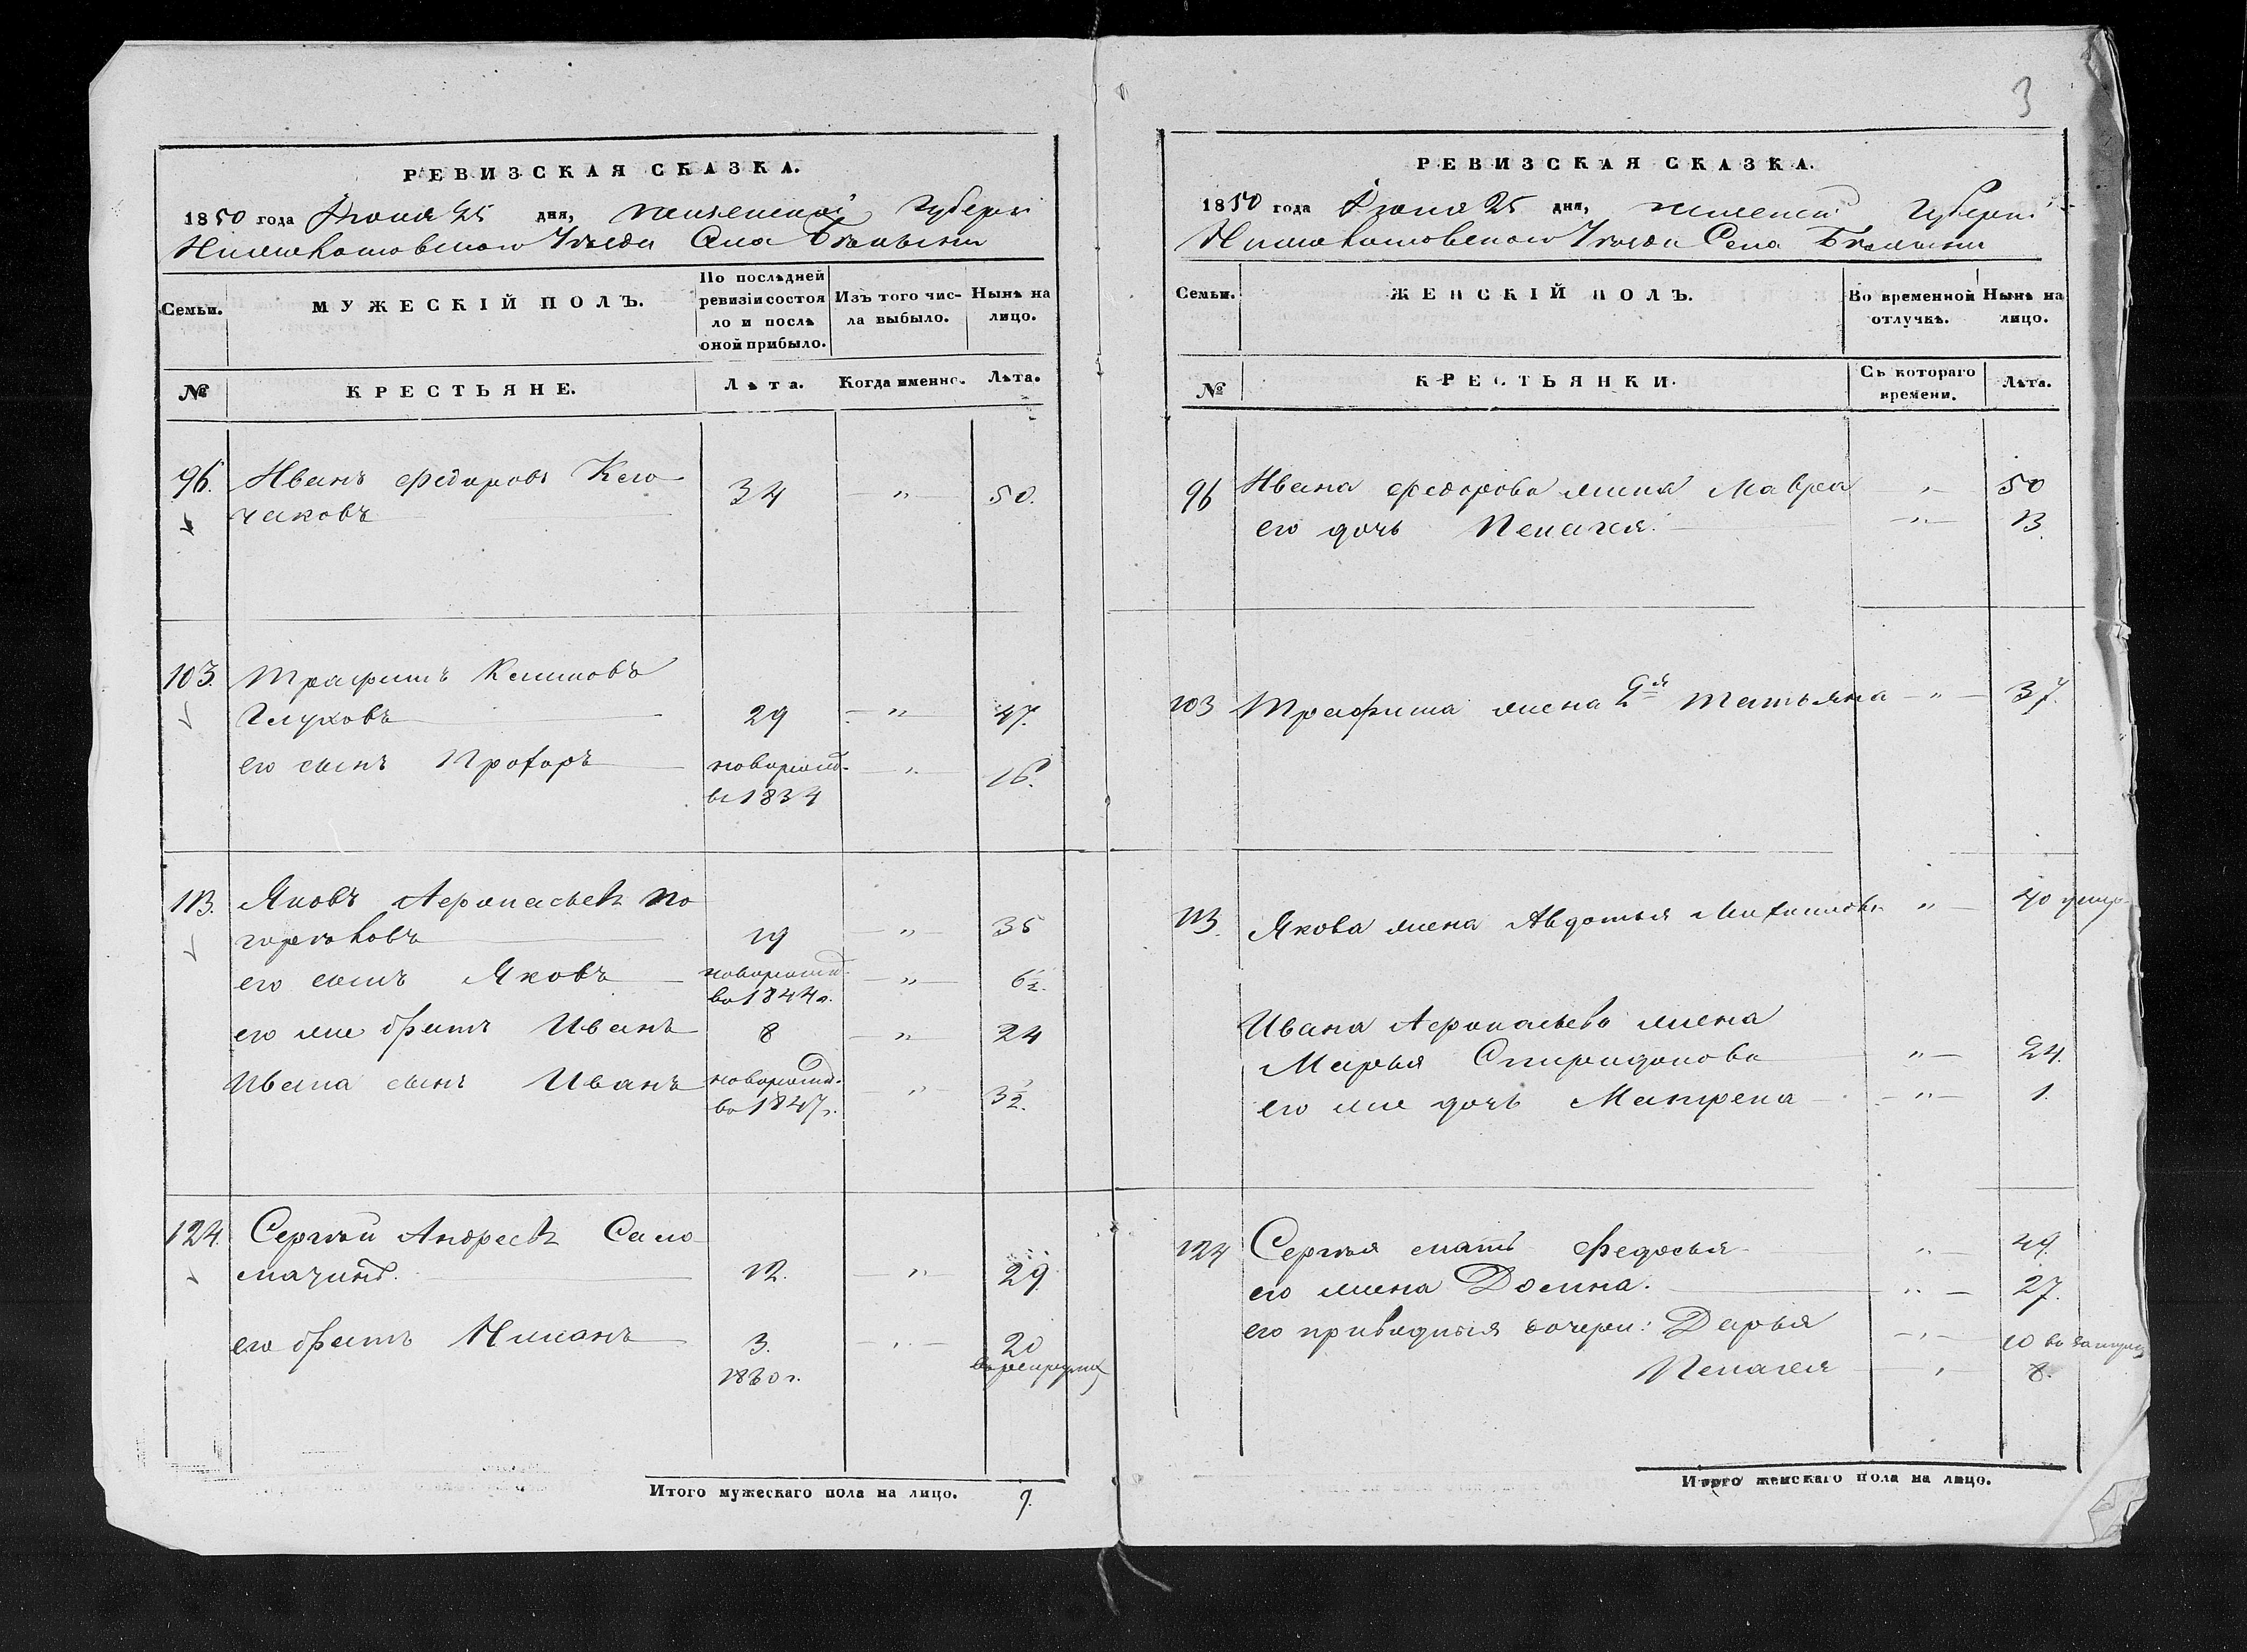 РЕВИЗСКАЯ СКАЗКА.
1850 года Іюня 25 дня, Пензенской Губерніи
Нижнеломовскаго Уѣзда Села
Семьи.
МУЖЕСКІЙ ПОЛЪ.
По послѣдней ревизіи состояло и послѣ оной прибыло.
Изъ того числа выбыло.
Нынѣ на лицо.
№
КРЕСТЬЯНЕ.
Лѣта.
Когда именно.
Лѣта.
96. Иванъ Федоровъ
чаковъ 34 — " — 50.
103. Трафимъ Климовъ
Глуховъ 29 — " — 47.
его сынъ Прохоръ новорожд. — " — 16.
въ 1834
113. Яковъ Афонасьевъ По
горѣловъ 19 — " — 35
его сынъ Яковъ новорожд. — " — 6½.
въ 1844 г.
его же братъ Иванъ 8 — " — 24
Ивана сынъ Иванъ новорожд. — " — 3½.
въ 1847 г.
124. Сергѣй Андреевъ Сало
мачинъ. 12. — " — 29
его братъ 3. — " — 20
1830 г.
Итого мужескаго пола на лицо. 9.
3
РЕВИЗСКАЯ СКАЗКА.
1850 года Іюня 25 дня, Пензенской Губерніи
Нижнеломовскаго Уѣзда Села
Семьи.
ЖЕНСКІЙ ПОЛЪ.
Во временной отлучкѣ.
Нынѣ на лицо.
№
КРЕСТЬЯНКИ.
Съ котораго времени.
Лѣта.
96 Ивана Федорова жена Мавра " 50
его дочь Пелагея. — " — 13.
103 Трафима жена 2я Татьяна — " — 37.
113. Якова жена Авдотья " — 40
Ивана Афонасьева жена
Марья Спиридонова " — 24.
его же дочь Матрена — " — 1.
124 Сергѣя мать Федосья " 49.
его жена Домна. " — 27.
его приводныя дочери: Дарья — " — 10
Пелагея — " — 8.
Итого женскаго пола на лицо.